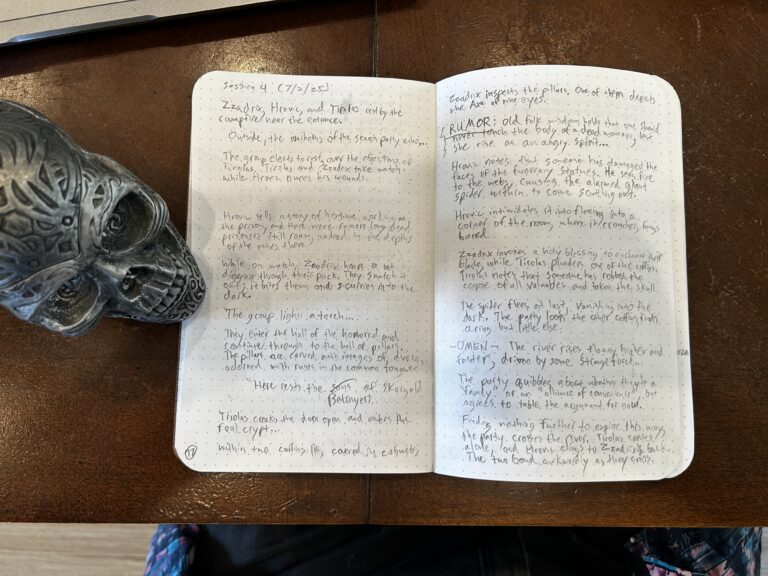 Session 4 (7/2/25)
Zzadrix, Hrovic, and Tirolas rest by the
campfire near the entrance.
Outside, the of the search party, echo...
The group elects to rest, over the objections of
Tirolas. Tirolas and Zzadrix take watch
while Hrovic nurses his wounds.
Hrovic tells a story of his time, working at
the prison, and there were rumors long dead
prisoners still roam, undead, in the depths
of the mines there.
While on watch, Zzadrix hears a rat
digging through their pack. They snatch it
out, it bites them and scurries into the
dark.
The group lights a torch...
They enter the hall of the honored and
continue through to the hall of pillars.
The pillars are carved with images of,
adorned with runes in the common tongue
"Here rests the sons of Skargold
(Betrayer)
Tirolas creaks the door open and enters the
foul crypt...
Within two coffins lie, covered in cobwebs
17
Zzadrix inspects the pillars. One of them depicts
the Axe of nine eyes.
RUMOR: Old folk wisdom holds that one should
never touch the body of a dead woman, lest
she rise as an angry spirit...
Hrovic notes that someone has damaged the
faces of the funerary statues. He sets fire
to the webs, causing the alarmed giant
spider within to come scuttling out.
Hrovic intimidates it into fleeing into a
corner of the room, where it crouches, fangs
bared.
Zzadrix invokes a holy blessing to enchant their
blade while Tirolas plunders one of the coffins.
Tirolas notes that someone has robbed the
corpse of all valuables and taken the skull.
The spider flees at last, vanishing into the
dark. The party loots the other coffin, finds
a ring, but little else.
-OMEN- The river rises, flowing higher and
faster, driven by some strange force...
The party quibbles about whether they're a
"family" or an "alliance of convenience" but
agrees to table the argument for now.
Finding nothing further to explore this way,
the party crosses the river. Tirolas crosses
alone, and Hrovic clings to Zzadrix's back.
The two bond awkwardly as they cross.